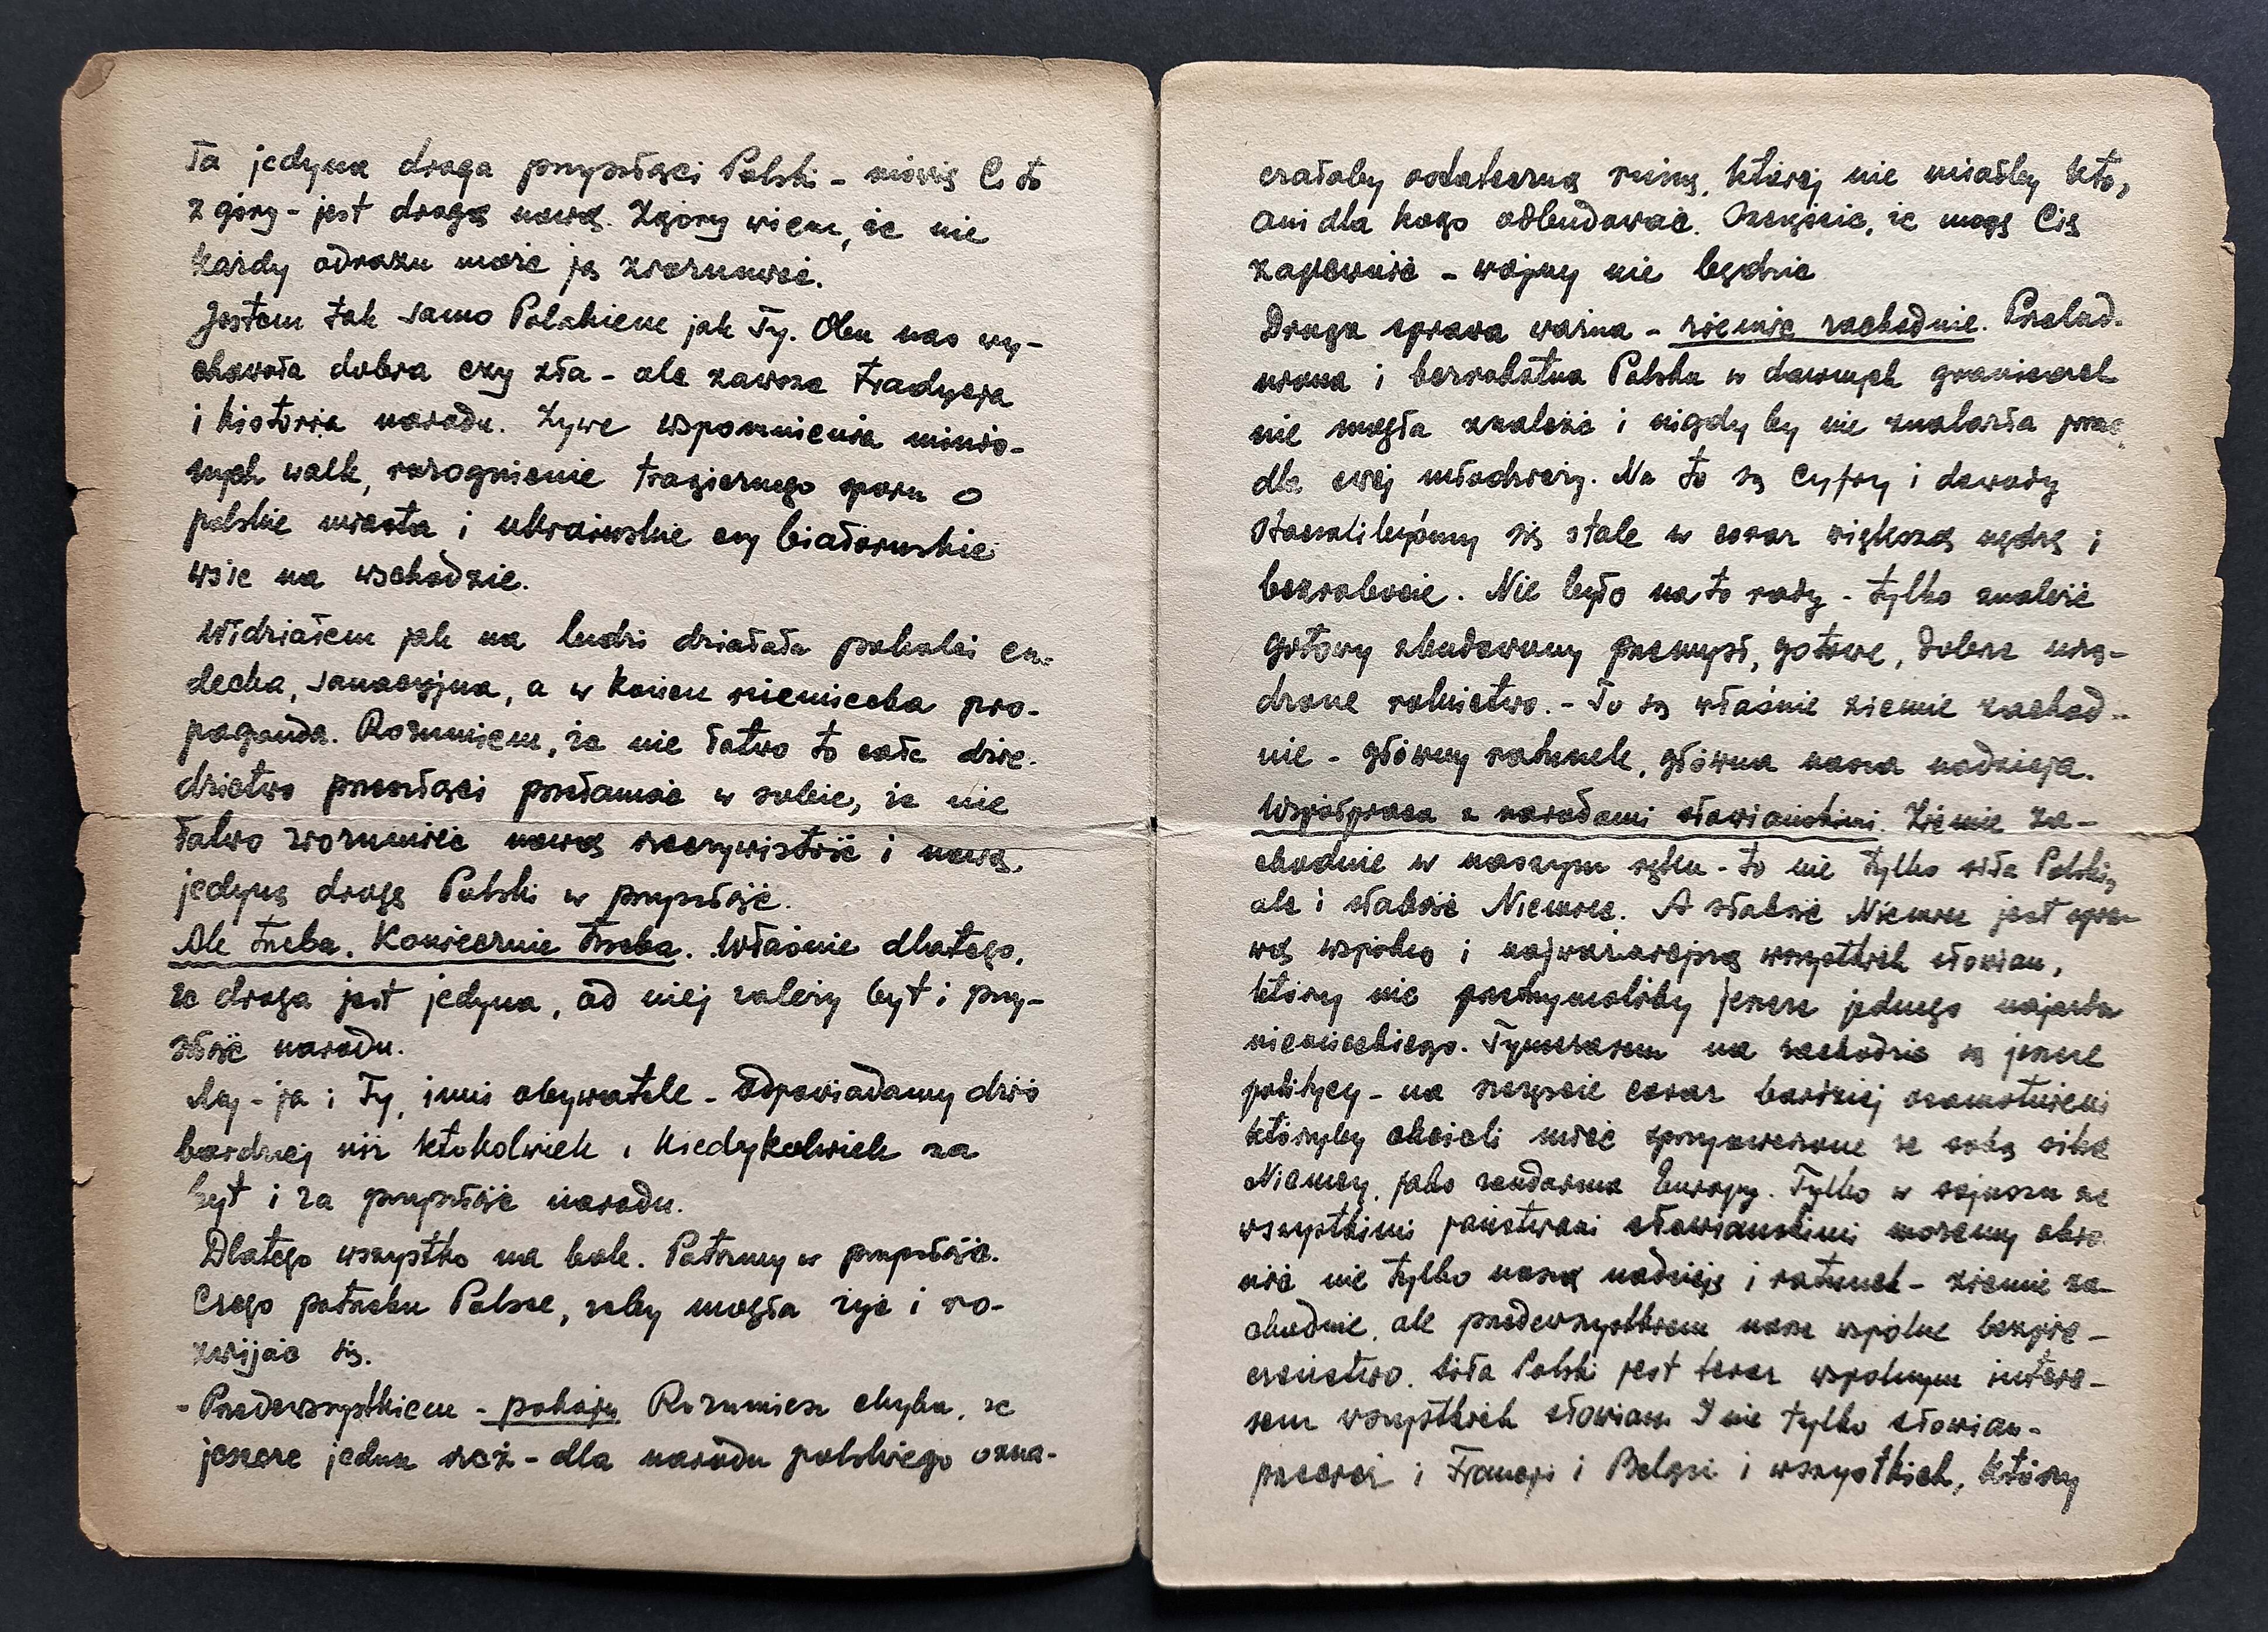 Ta jedyna droga przyszłości Polski - mówię Ci to
z góry - jest drogą nową. Zgóry wiem, że nie
każdy odrazu może ją zrozumieć.
Jestem tak samo Polakiem jak Ty. Obu nas wy-
chowała dobra czy zła - ale zawsze tradycja
i historia narodu. Żywe wspomnienia minio-
nych walk, rozognienie tragicznego sporu o
polskie miasta i ukraińskie czy białoruskie
wsie na wschodzie.
Widziałem jak na ludzi działała pokolei en-
decka, sanacyjna, a w końcu niemiecka pro-
paganda. Rozumiem, że nie łatwo to całe dzie-
dzictwo przeszłości przełamać w sobie, że nie
łatwo zrozumieć nową rzeczywistość i nową,
jedyną drogę Polski w przyszłość.
Ale trzeba. Koniecznie trzeba. Właśnie dlatego,
że droga jest jedyna, od niej zależy byt i przy-
szłość narodu.
My - ja i Ty, inni obywatele - odpowiadamy dziś
bardziej niż ktokolwiek i kiedykolwiek za
byt i za przyszłość narodu.
Dlatego wszystko na bok. Patrzmy w przyszłość.
Czego potrzeba Polsce, żeby mogła żyć i ro-
zwijać się.
- Przedewszystkiem - pokoju Rozumiesz chyba, że
jeszcze jedna rzeź - dla narodu polskiego ozna-
czałaby ostateczną ruinę, której nie miałby kto,
ani dla kogo odbudować. Szczęście, że mogę Cię
zapewnić - wojny nie będzie
Druga sprawa ważna - ziemie zachodnie. Przelud-
niona i bezrobotna Polska w dawnych granicach
nie mogła znaleźć i nigdy by nie znalazła pracy
dla swej młodzieży. Na to są cyfry i dowody
Staczalibyśmy się stale w coraz większą nędzę i
bezrobocie. Nie było na to rady - tylko znaleźć
gotowy zbudowany przemysł, gotowe, dobrze urzą-
dzone rolnictwo. - To są właśnie ziemie zachod-
nie - główny ratunek, główna nasza nadzieja.
Współpraca z narodami słowiańskimi. Ziemie za-
chodnie w naszym ręku - to nie tylko siła Polski,
ale i słabość Niemiec. A słabość Niemiec jest spra-
wą wspólną i najważniejszą wszystkich słowian,
którzy nie przetrzymaliby jeszcze jednego najazdu
niemieckiego. Tymczasem na zachodzie są jeszcze
politycy - na szczęście coraz bardziej osamotnieni
którzyby chcieli mieć sprzymierzone ze sobą silne
Niemcy, jako żandarma Europy. Tylko w sojuszu ze
wszystkimi państwami słowiańskimi możemy obro-
nić nie tylko naszą nadzieję i ratunek - ziemie za-
chodnie, ale przedewszystkiem nasze wspólne bezpie-
czeństwo. Siła Polski jest teraz wspólnym intere-
sem wszystkich słowian I nie tylko słowian -
przecież i Francji i Belgii i wszystkich, którzy